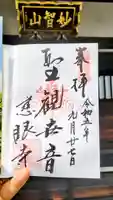 妙智山
奉拝
令和五年
九月廿七日
聖観世音
慈眼寺